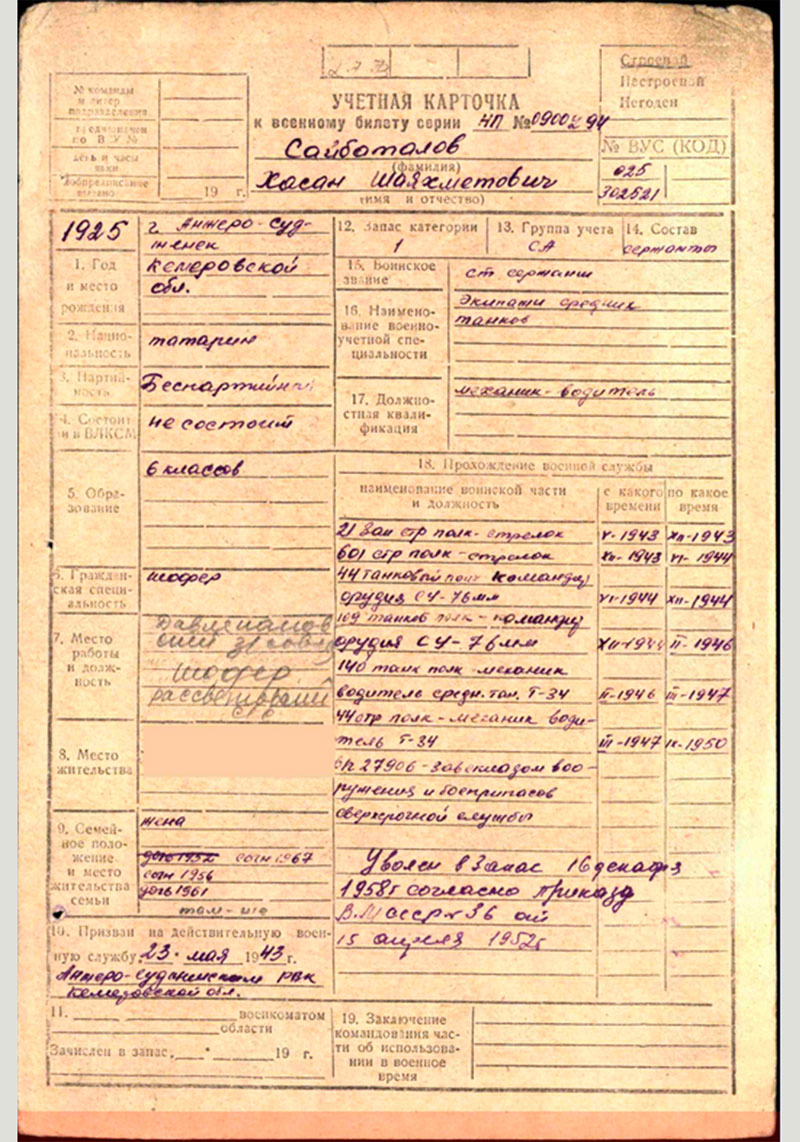 Строевой
Нестроевой
Негоден
№ команды
и литер
подразделения
предназначен
по В.У.№
день и часы
явки
Мобпредписание
19 г.
УЧЕТНАЯ КАРТОЧКА
к военному билету серии НП №
Сайбаталов
(фамилия)
Хасан Шаяхметович
(имя и отчество)
№ ВУС (КОД)
025
302521
1925
1. Год
и место
рождения
г. Анжеро-Суд-
женск
Кемеровской
обл.
2. Нацио-
нальность
татарин
3. Партий-
ность
Беспартийный
4. Состоит
ли в ВЛКСМ
не состоит
5. Обра-
зование
6 классов
6. Граждан-
ская специ-
альность
шофер
7. Место
работы
и долж-
ность
шофер
8. Место
жительства
9. Семей-
ное поло-
жение
и место
жительства
семьи
жена
дочь 1952 сын 1967
сын 1956
дочь 1961
там-же
10. Призван на действительную воен-
ную службу 23 мая 1943 г.
Анжеро-Судженским РВК
Кемеровской обл.
11. военкоматом
области
Зачислен в запас 19 г.
12. Запас категории
1
13. Группа учета
СА
14. Состав
сержанты
15. Воинское
звание
ст. сержант
16. Наимено-
вание военно-
учетной спе-
циальности
Экипажи средних
танков
17. Должно-
стная квали-
фикация
механик-водитель
18. Прохождение военной службы
наименование воинской части
и должность
с какого
времени
по какое
время
21 зап стр полк-стрелок V-1943 XII-1943
601 стр полк-стрелок XII-1943 VI-1944
44 танковый полк командир
орудия СУ-76мм VI-1944 XII-1944
109 танков полк-командир
орудия СУ-76мм XII-1944 II-1946
140 танк полк-механик
водитель средн. тан. Т-34 II-1946 III-1947
44 отр полк-механик води-
тель Т-34 III-1947 IX-1950
в/ч 27906-завскладом воо-
ружения и боеприпасов
сверхсрочной службы
Уволен в запас 16 декабря
1958г согласно приказу
В.М СССР №36 от
15 апреля 1952г
19. Заключение
командования час-
ти об использова-
нии в военное
время